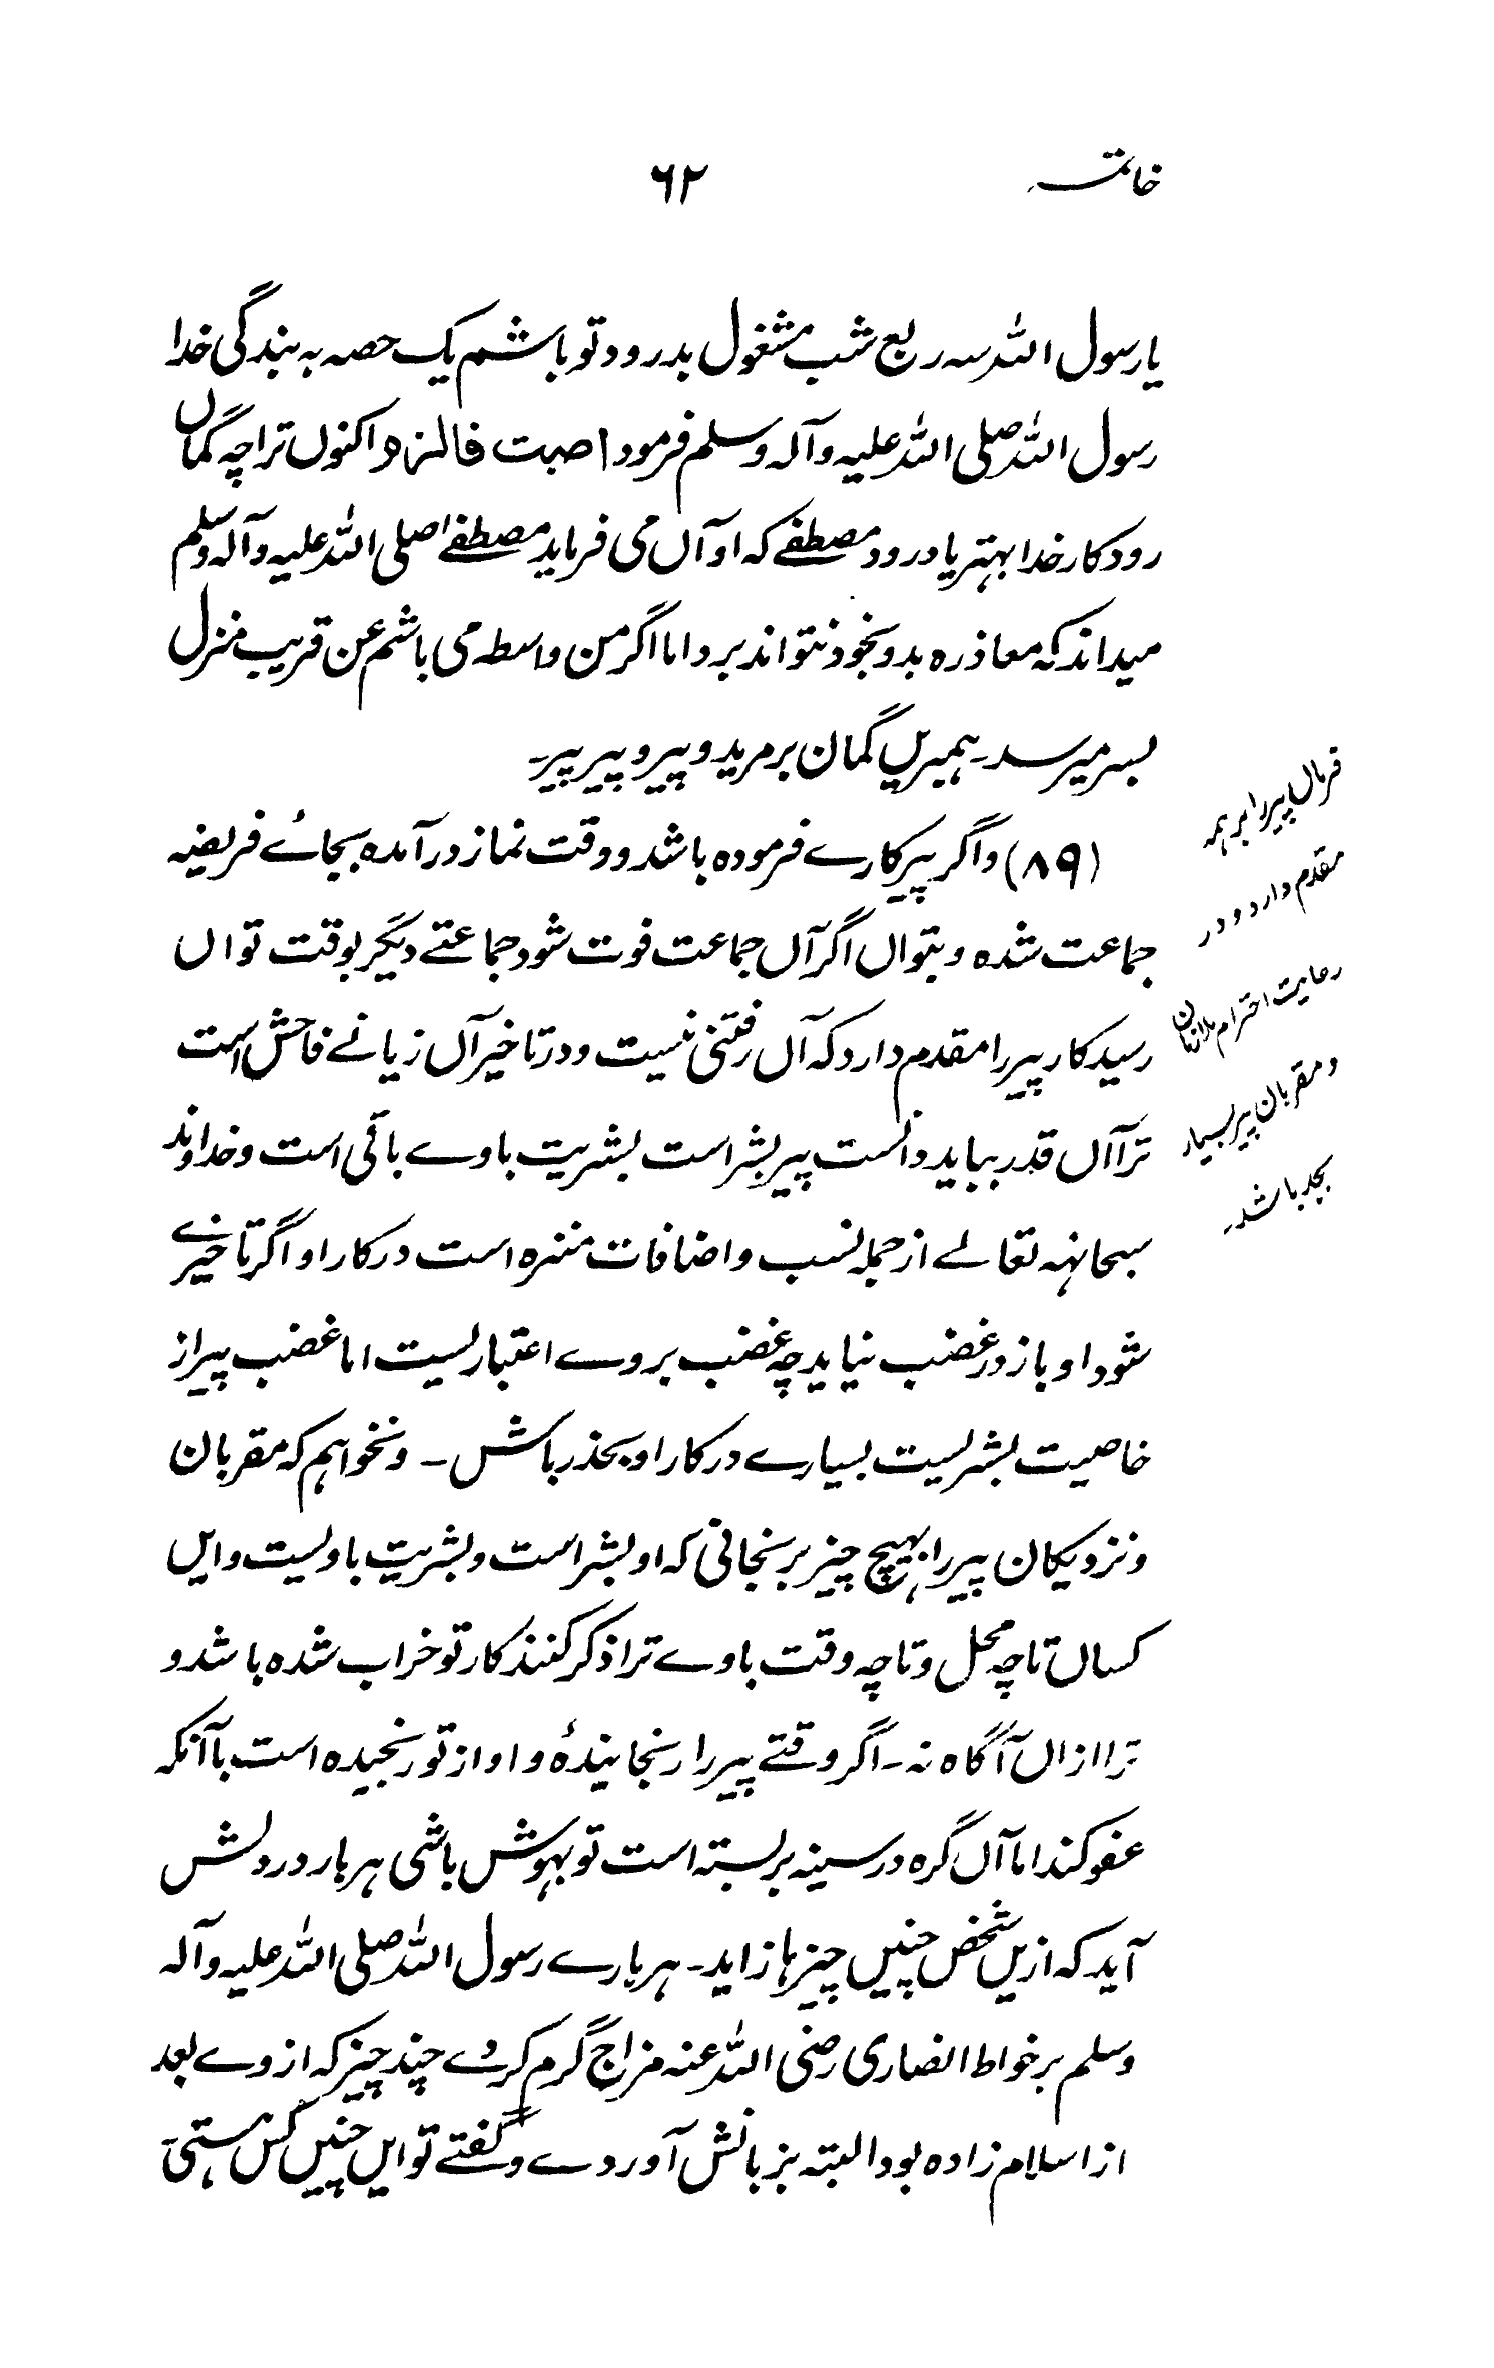 خاتمہ
۶۲
یا رسول اللہ سہ ربع شب مشغول بدرود تو باشم یک حصہ بہ بندگی خدا
رسول اللہ صلی اللہ علیہ وآلہ وسلم فرمود اصبت فالزم اکنوں ترا چہ گماں
رود کار خدا بہتر یا درود مصطفےٰ کہ او آں می فرماید مصطفےٰ صلی اللہ علیہ وآلہ وسلم
میداند کہ معاذ رہ بدو بخود نتواند برد اما اگر من واسطہ می باشم عن قریب منزل
بسر میرسد۔ ہمیریں گمان بر مرید و پیر و پیر پیر۔
(۸۹) واگر پیر کارے فرمودہ باشد و وقت نماز در آمدہ بجائے فریضہ
جماعت شدہ و بتواں اگر آں جماعت فوت شود جماعتے دیگر بوقت تواں
رسید کار پیر را مقدم دارد کہ آں رفتنی نیست و در تاخیر آں زیانے فاحش است
ترا آں قدر بباید دانست پیر بشر است بشریت باوے باقی است و خداوند
سبحانہٗ تعالےٰ از جملہ نسب و اضافات منزہ است در کار او اگر تاخیرے
شود او باز در غضب نیاید چہ غضب بروے اعتباریست اما غضب پیر از
خاصیت بشریست بسیارے در کار او بحذر باش ۔ ونخواہم کہ مقربان
ونزدیکان پیر را بہیچ چیز برنجانی کہ او بشر است و بشریت باویست و ایں
کساں تا چہ محل و تا چہ وقت باوے ترا ذکر کنند کار تو خراب شدہ باشد و
ترا ازاں آگاہ نہ۔ اگر وقتے پیر را رنجانیدۂ و او از تو رنجیدہ است با آنکہ
عفو کند اما آں گرہ در سینہ بر بستہ است تو بہوش باشی ہر بار در دلش
آید کہ ازیں شخص چنیں چیزہا زاید۔ ہر بارے رسول اللہ صلی اللہ علیہ وآلہ
وسلم بر خواط انصاری رضی اللہ عنہ مزاج گرم کردے چند چیز کہ از وے بعد
از اسلام زادہ بود البتہ بزبانش آوردے و گفتے تو ایں چنیں کس ہستی
فرمان پیر را بر ہمہ
مقدم دارد و در
رعایت احترام
و مقربان پیر بسیار
بجد باشد۔